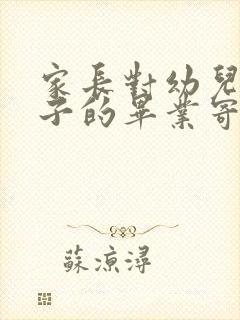 家長對幼兒
子的畢業寄
蘇涼潯